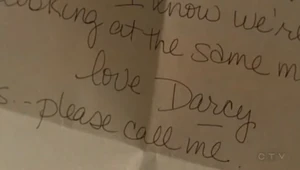 I know we're
looking at the same m
love Darcy
s. - please call me.
CTV